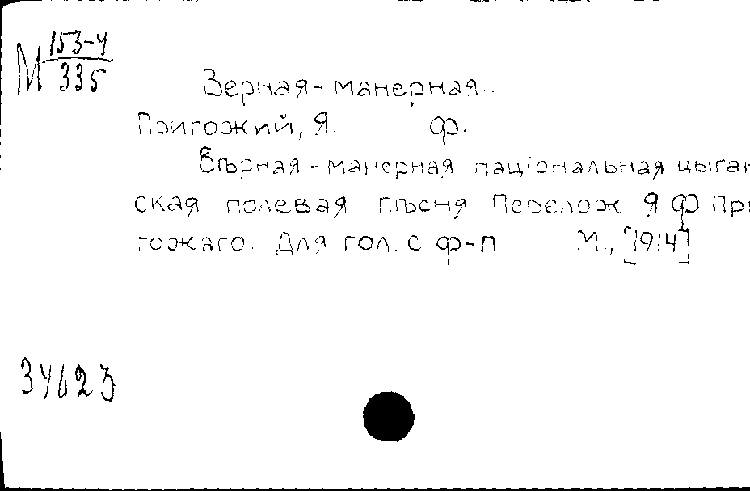 М 153-4
335
Зерная-манерная..
Пригожий, Я. Ф.
Вѣрная-манерная национальная цыган
ская полевая пѣсня Перелож Я Ф При
гожаго. Для гол. с ф-п М., [1914]
34623